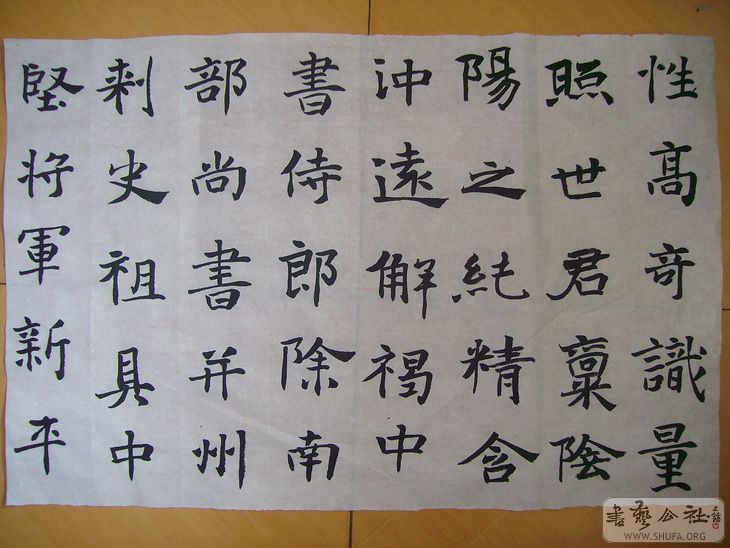 性高奇識量
照世君稟陰
陽之純精含
沖遠解褐中
書侍郎除南
部尚書并州
刺史祖具中
堅將軍新平
書藝公社
WWW.SHUFA.ORG